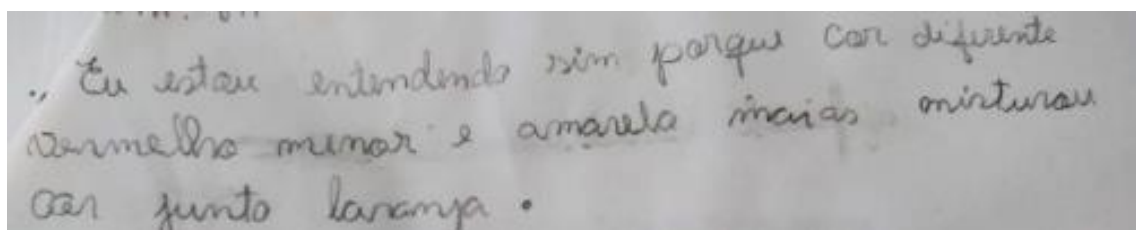 ., Eu estou entendendo sim porque cor diferente
vermelho menor e amarela maias misturou
cor junto laranja.